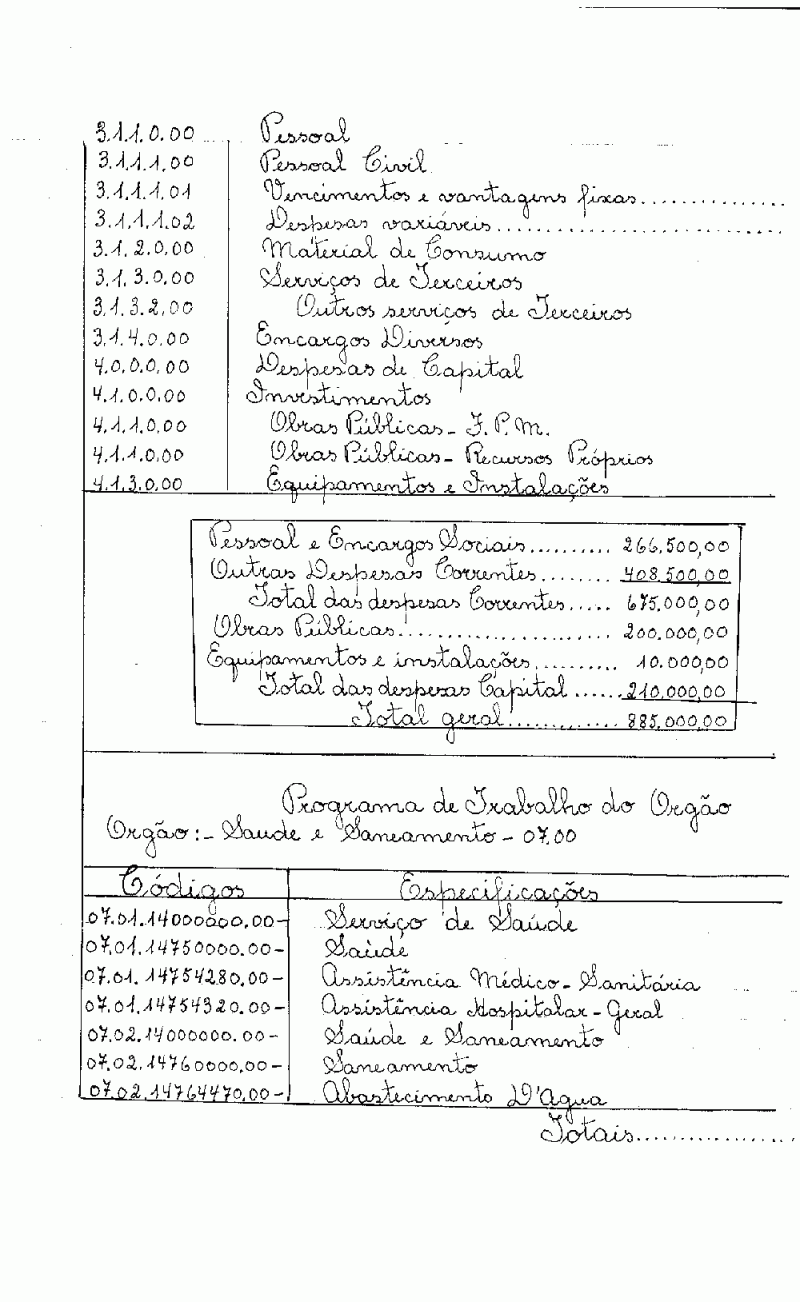 3.1.1.0.00 Pessoal
3.1.1.1.00 Pessoal Civil
3.1.1.1.01 Vencimentos e vantagens fixas..............
3.1.1.1.02 Despesas variáveis............................
3.1.2.0.00 Material de Consumo
3.1.3.0.00 Serviços de Terceiros
3.1.3.2.00 Outros serviços de Terceiros
3.1.4.0.00 Encargos Diversos
4.0.0.0.00 Despesas de Capital
4.1.0.0.00 Investimentos
4.1.1.0.00 Obras Públicas - F.P.M.
4.1.1.0.00 Obras Públicas - Recursos Próprios
4.1.3.0.00 Equipamentos e Instalações
Pessoal e Encargos Sociais.......... 266.500,00
Outras Despesas Correntes........ 408.500,00
Total das despesas Correntes..... 675.000,00
Obras Públicas....................... 200.000,00
Equipamentos e instalações.......... 10.000,00
Total das despesas Capital...... 210.000,00
Total geral............. 885.000,00
Programa de Trabalho do Orgão
Orgão:- Saude e Saneamento - 07.00
Códigos Especificações
07.01.14000000.00- Serviço de Saúde
07.01.14750000.00- Saúde
07.01.14754280.00- Assistência Médico-Sanitária
07.01.14754320.00- Assistência Hospitalar-Geral
07.02.14000000.00- Saúde e Saneamento
07.02.14760000.00- Saneamento
07.02.14764470.00- Abastecimento D'Agua
Totais.................